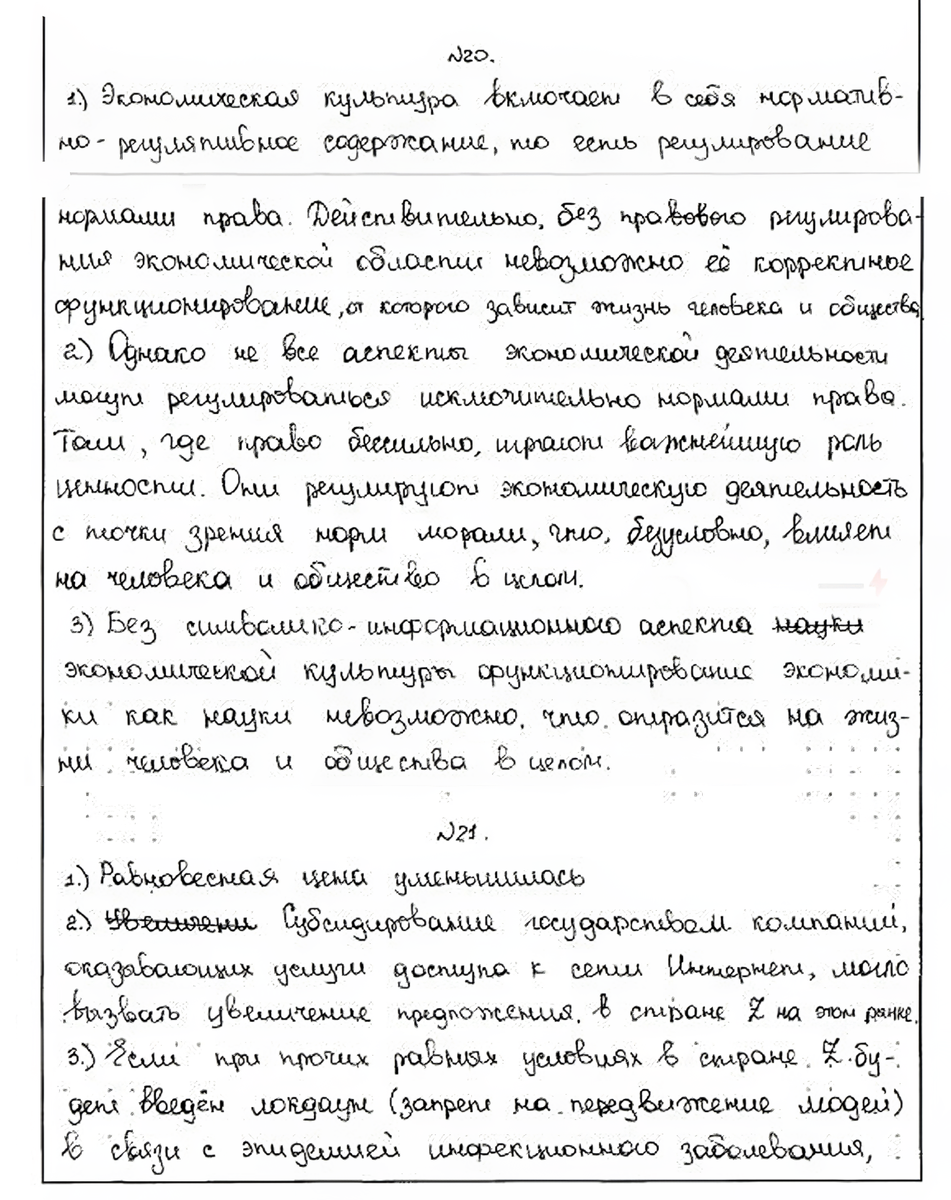 №20.
1.) Экономическая культура включает в себя норматив-
но-регулятивное содержание, то есть регулирование
нормами права. Действительно, без правового регулирова-
ния экономической области невозможно её корректное
функционирование, от которого зависит жизнь человека и общества
2) Однако не все аспекты экономической деятельности
могут регулироваться исключительно нормами права.
Там, где право бессильно, играют важнейшую роль
ценности. Они регулируют экономическую деятельность
с точки зрения норм морали, что, безусловно, влияет
на человека и общество в целом.
3) Без символико-информационного аспекта науки
экономической культуры функционирование экономи-
ки как науки невозможно, что отразится на жиз-
ни человека и общества в целом.
№21.
1.) Равновесная цена уменьшилась
2.) Субсидирование государством компаний,
оказывающих услуги доступа к сети Интернет, могло
вызвать увеличение предложения в стране Z на этом рынке.
3.) Если при прочих равных условиях в стране Z бу-
дет введён локдаун (запрет на передвижение людей)
в связи с эпидемией инфекционного заболевания,